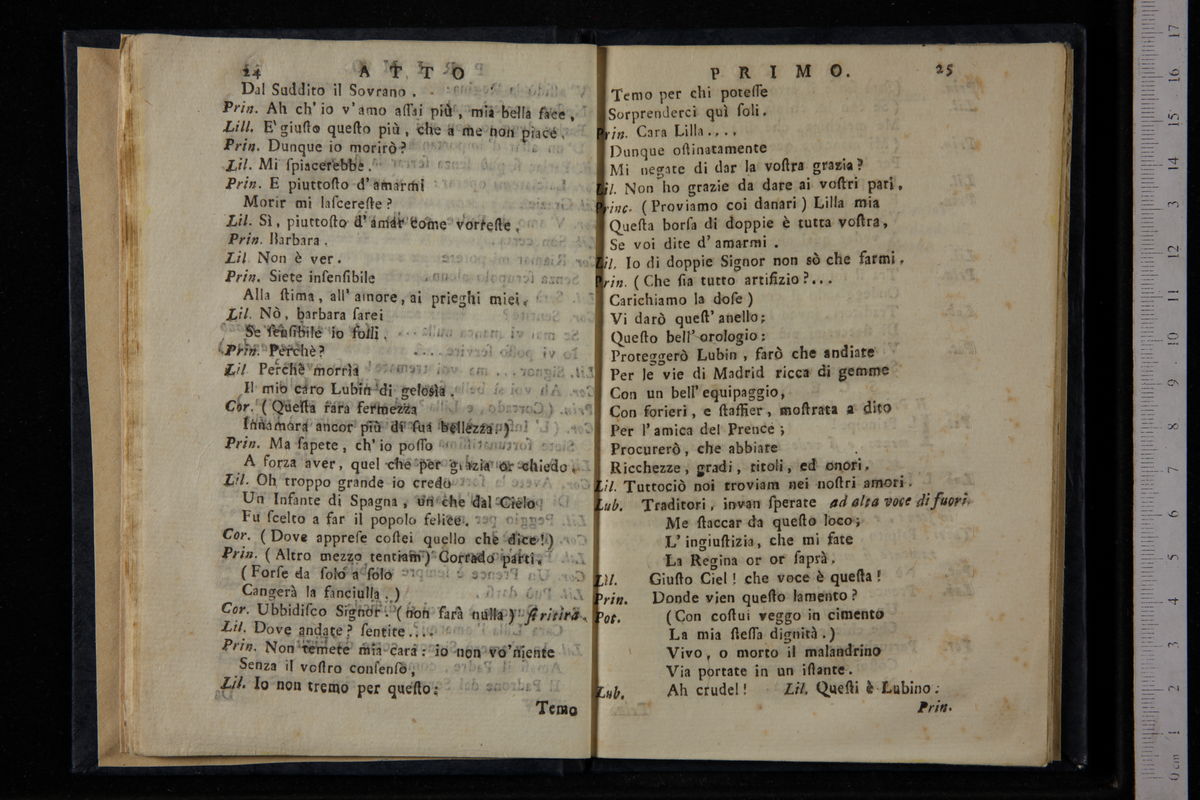 24 ATTO
Dal Suddito il Sovrano .
Prin. Ah ch' io v' amo aſſai più , mia bella face ,
Lill. E' giuſto queſto più , che a me non piace .
Prin. Dunque io morirò ?
Lil. Mi ſpiacerebbe .
Prin. E piuttoſto d' amarmi
Morir mi laſcereſte ?
Lil. Sì , piuttoſto d' amar come vorreſte ,
Prin. Barbara .
Lil Non è ver .
Prin. Siete inſenſibile
Alla ſtima , all' amore , ai prieghi miei .
Lil. Nò , barbara ſarei
Se ſenſibile io foſſi .
Prin. Perchè ?
Lil Perchè morrìa
Il mio caro Lubin di gelosìa .
Cor. ( Queſta rara fermezza
Innamora ancor più di ſua bellezza . )
Prin. Ma ſapete , ch' io poſſo
A forza aver , quel che per grazia or chiedo .
Lil. Oh troppo grande io credo
Un Infante di Spagna , un che dal Cielo
Fu ſcelto a far il popolo felice .
Cor. ( Dove appreſe coſtei quello che dice ! )
Prin. ( Altro mezzo tentiam ) Corrado parti .
( Forſe da ſolo a ſolo
Cangerà la fanciulla . )
Cor. Ubbidiſco Signor . ( non farà nulla ) ſi ritira .
Lil. Dove andate ? ſentite ....
Prin. Non temete mia cara : io non vo' niente
Senza il voſtro conſenſo ,
Lil. Io non tremo per queſto :
Temo
PRIMO. 25
Temo per chi poteſſe
Sorprenderci quì ſoli .
Prin. Cara Lilla ....
Dunque oſtinatamente
Mi negate di dar la voſtra grazia ?
Lil. Non ho grazie da dare ai voſtri pari .
Princ. ( Proviamo coi danari ) Lilla mia
Queſta borſa di doppie è tutta voſtra ,
Se voi dite d' amarmi .
Lil. Io di doppie Signor non sò che farmi .
Prin. ( Che ſia tutto artifizio ? ...
Carichiamo la doſe )
Vi darò queſt' anello ;
Queſto bell' orologio :
Proteggerò Lubin , farò che andiate
Per le vie di Madrid ricca di gemme
Con un bell' equipaggio ,
Con forieri , e ſtaffier , moſtrata a dito
Per l' amica del Prence ;
Procurerò , che abbiate
Ricchezze , gradi , titoli , ed onori .
Lil. Tuttociò noi troviam nei noſtri amori .
Lub. Traditori , invan ſperate ad alta voce di fuori
Me ſtaccar da queſto loco ;
L' ingiuſtizia , che mi fate
La Regina or or ſaprà .
Lil. Giuſto Ciel ! che voce è queſta !
Prin. Donde vien queſto lamento ?
Pot. ( Con coſtui veggo in cimento
La mia ſteſſa dignità . )
Vivo , o morto il malandrino
Via portate in un iſtante .
Lub. Ah crudel ! Lil. Queſti è Lubino :
Prin.